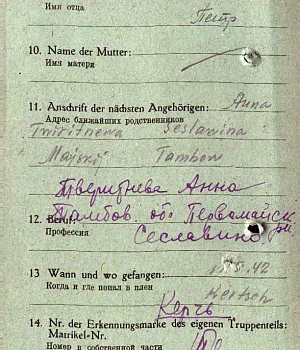 Имя отца
Петр
10. Name der Mutter:
Имя матери
11. Anschrift der nächsten Angehörigen: Anna
Адрес ближайших родственников
Seslawina
Majskij Tambow
Анна
Тамбов. об. Первомайск
12. Beruf: ри
Профессия Сеславино
13 Wann und wo gefangen: 42
Когда и где попал в плен Kertsch
Керчь
14. Nr. der Erkennungsmarke des eigenen Truppenteils:
Matrikel-Nr.
Номер в собственной части